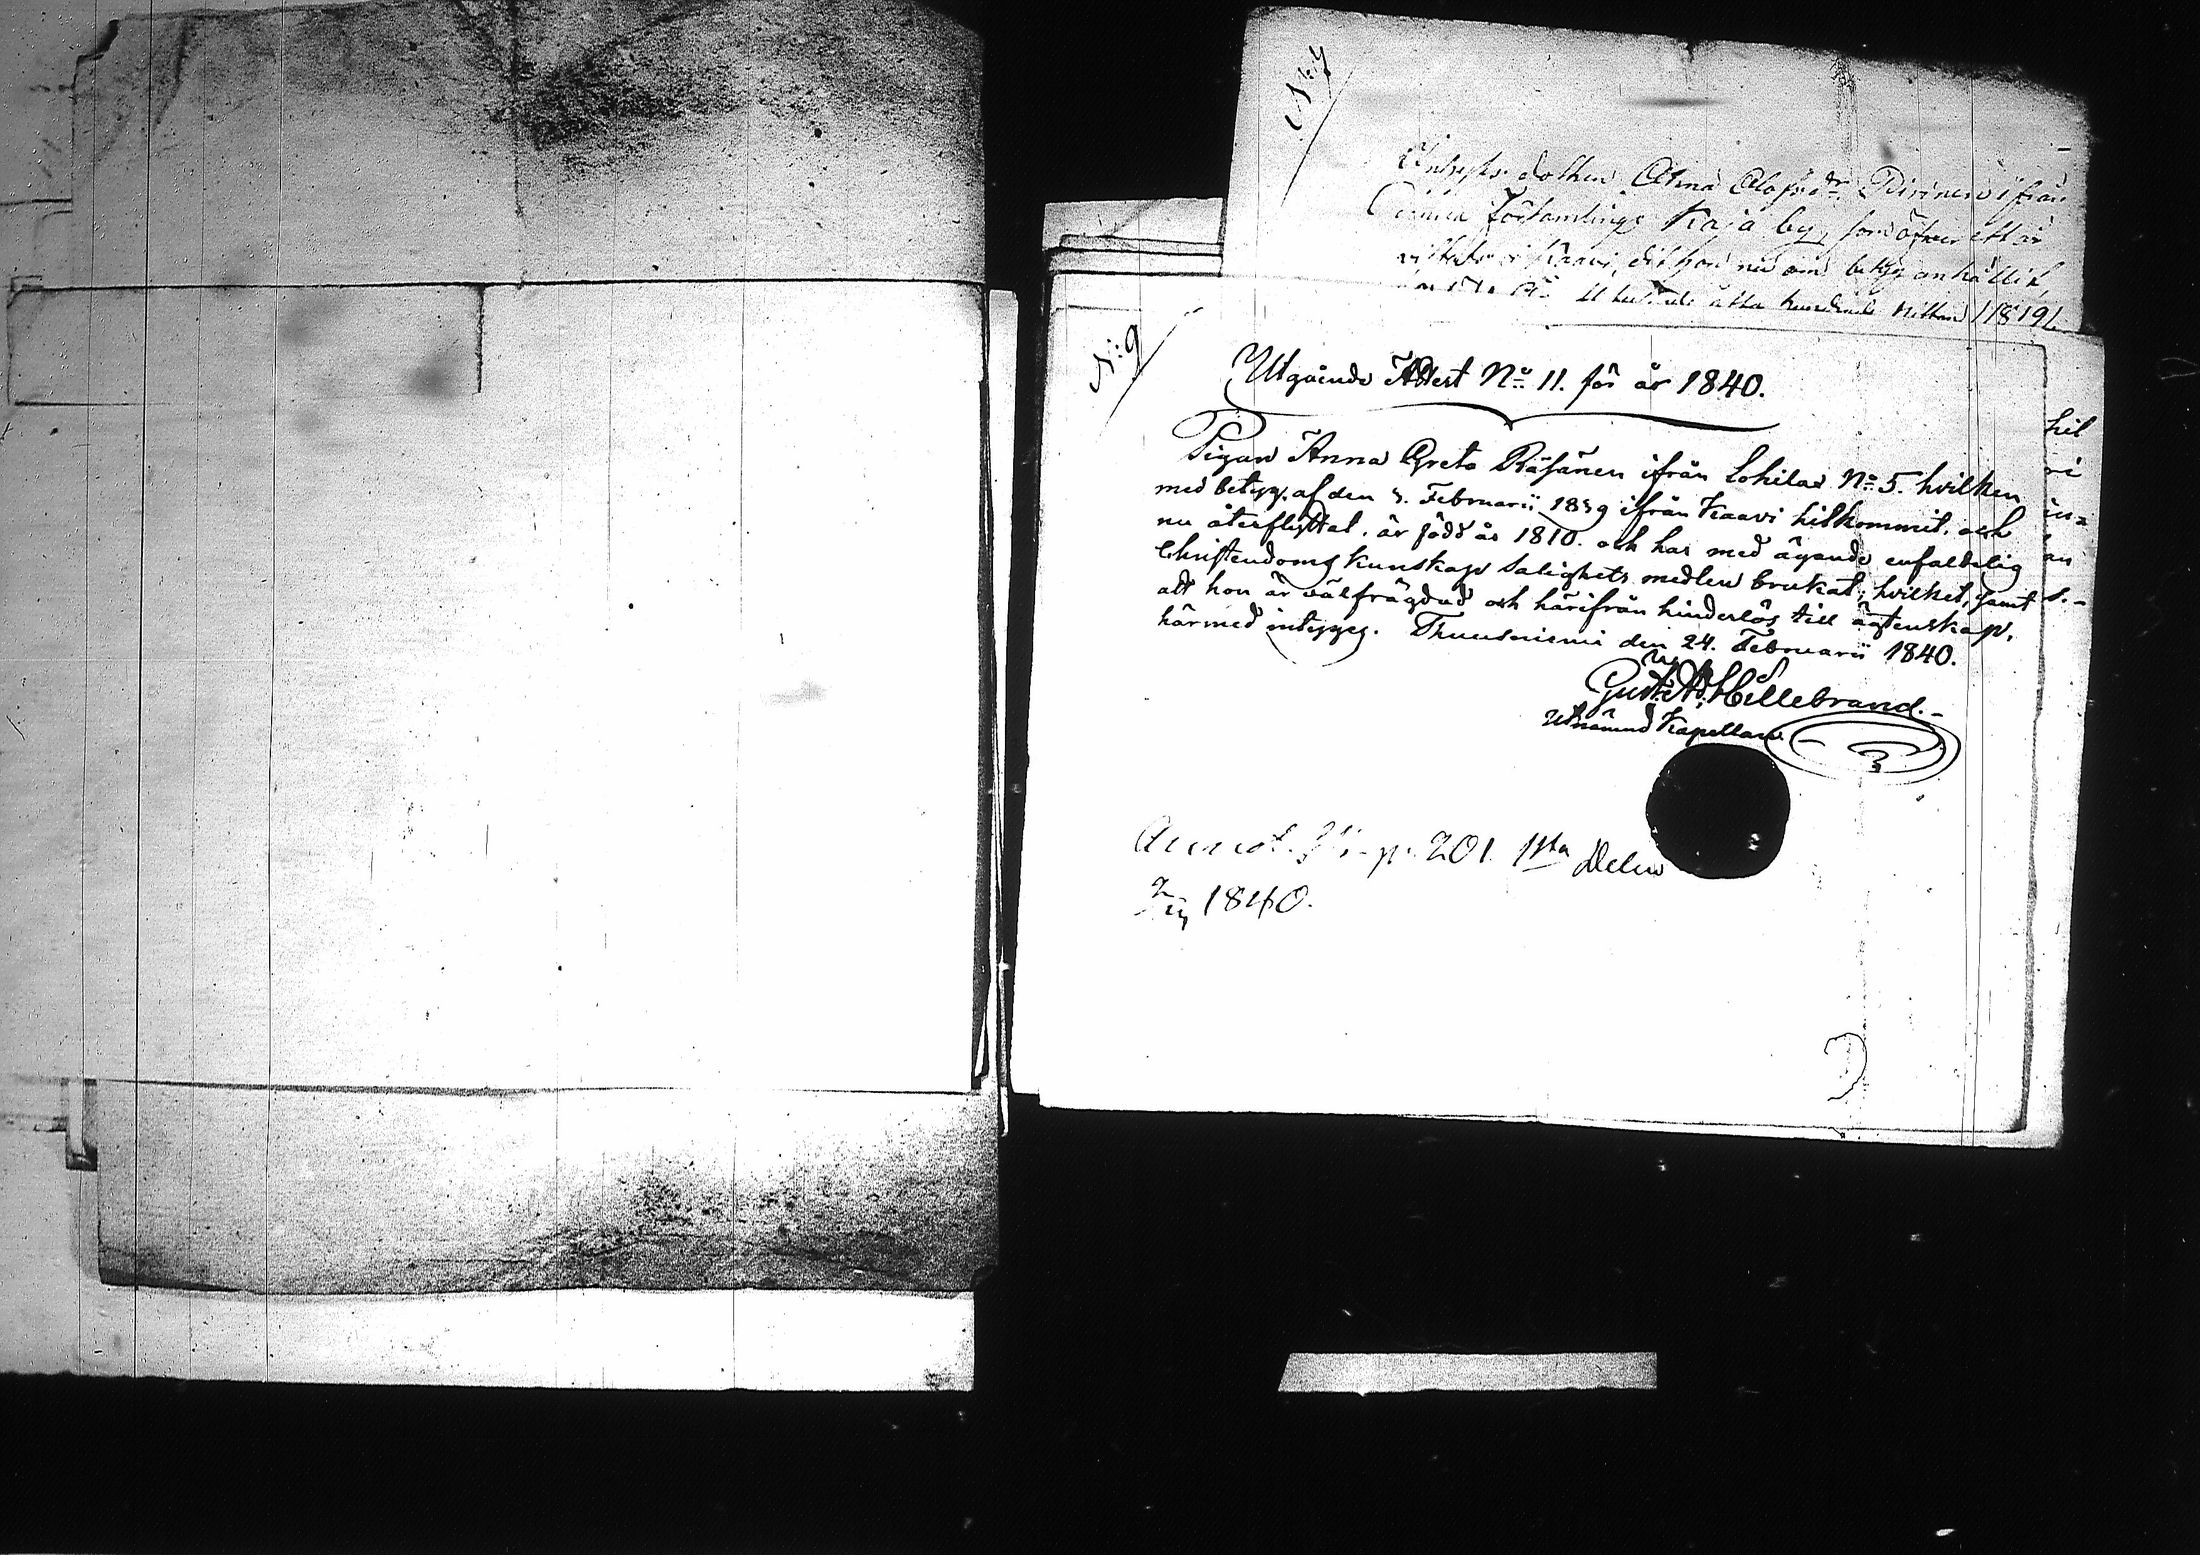 N:4
dottren Anna Olofsdr Piirinen ifrån
församlings Kaja by, som öfver ett år
vistats i Kaavi, dit hon nu om betyg anhållit,
ett tusende åtta hundrade nittan /1819/
N:9
Utgående Attest No 11. för år 1840.
Pigan Anna Greta Räsänen ifrån Lohilax No 5. hvilken
med betyg. af den 3. Februarii 1839 ifrån Kaavi hitkommit, och
nu återflyttat, är född år 1810. och har med ägande enfaldelig
Christendoms kunskap salighets medlen brukat; hvilket, samt
att hon är välfrägdad och härifrån hinderlös till ägtenskap,
härmed intygges. Thuusniemi den 24. Februarii 1840.
Gust. Ad. Hillebrand.
Utnämnd Kapellan.
Annot. p. 201 1sta Delen
1840.
hit